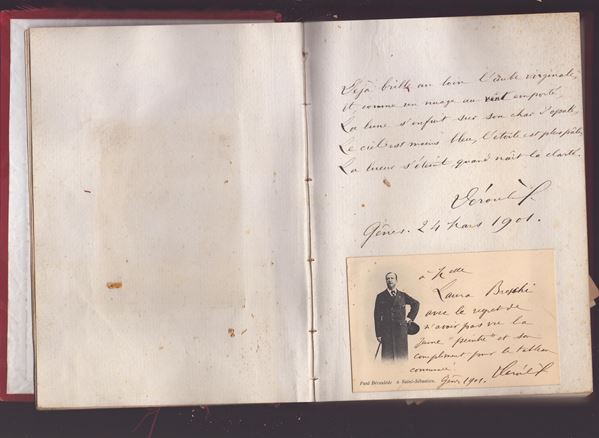 Déjà brille au loin l'aube virginale,
Et comme un nuage au vent emporté
La lune s'enfuit sur son char d'opale,
Le ciel est moins bleu, l'étoile est plus pâle,
La lueur s'éteint quand naît la clarté.
Gênes. 24 Mars 1901.
à Melle
Laura
avec le regret de
n'avoir pas vu la
jeune "peintre" et son
compliment pour le tableau
Gênes 1901.
Paul Déroulède à Saint-Sébastien.